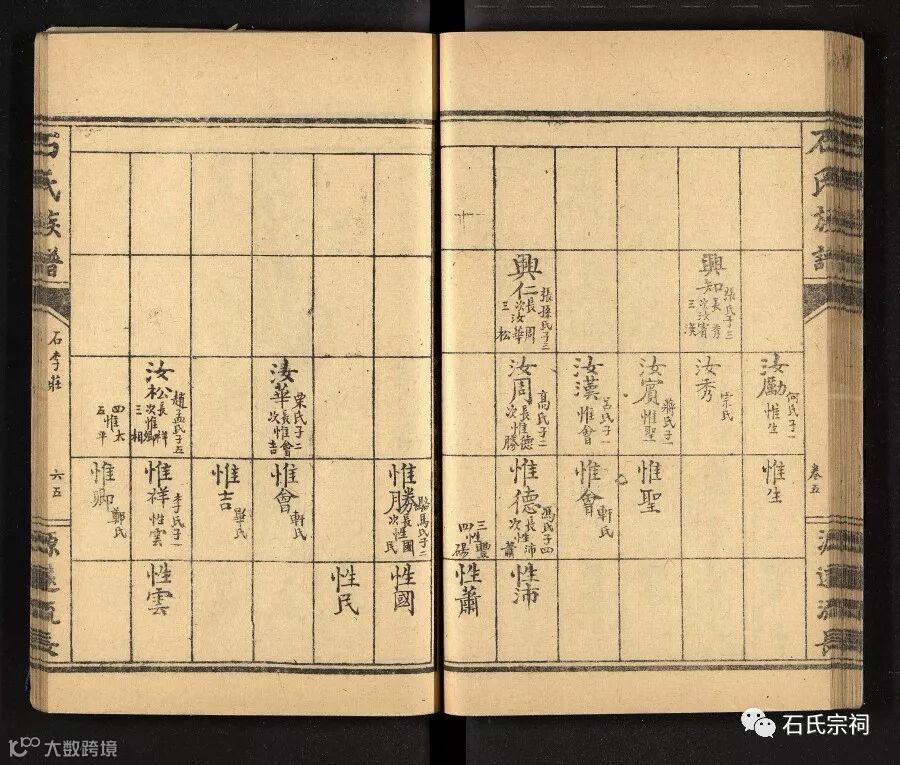 石氏族譜
卷五
源遠流長
興知
張氏子三
長秀
次汝賓
三漢
興仁
張孫氏子三
長周
次汝華
三松
汝勵
何氏子一
惟生
汝秀
宗氏
汝賓
蔣氏子一
惟聖
汝漢
呂氏子一
惟會
汝周
高氏子二
長惟德
次惟勝
惟生
惟聖
惟會
軒氏
惟德
馮氏子四
長性沛
次蕭
三性豐
四碭
性沛
性蕭
汝華
栗氏子二
長惟會
次吉
汝松
趙孟氏子五
長祥
次惟卿
三相
四惟太
五平
惟勝
駱馬氏子二
長性國
次民
惟會
軒氏
惟吉
畢氏
惟祥
李氏子一
性雲
惟卿
鄭氏
性國
性民
性雲
石氏族譜
石李莊
六五
源遠流長
石氏宗祠
10100 大数跨境